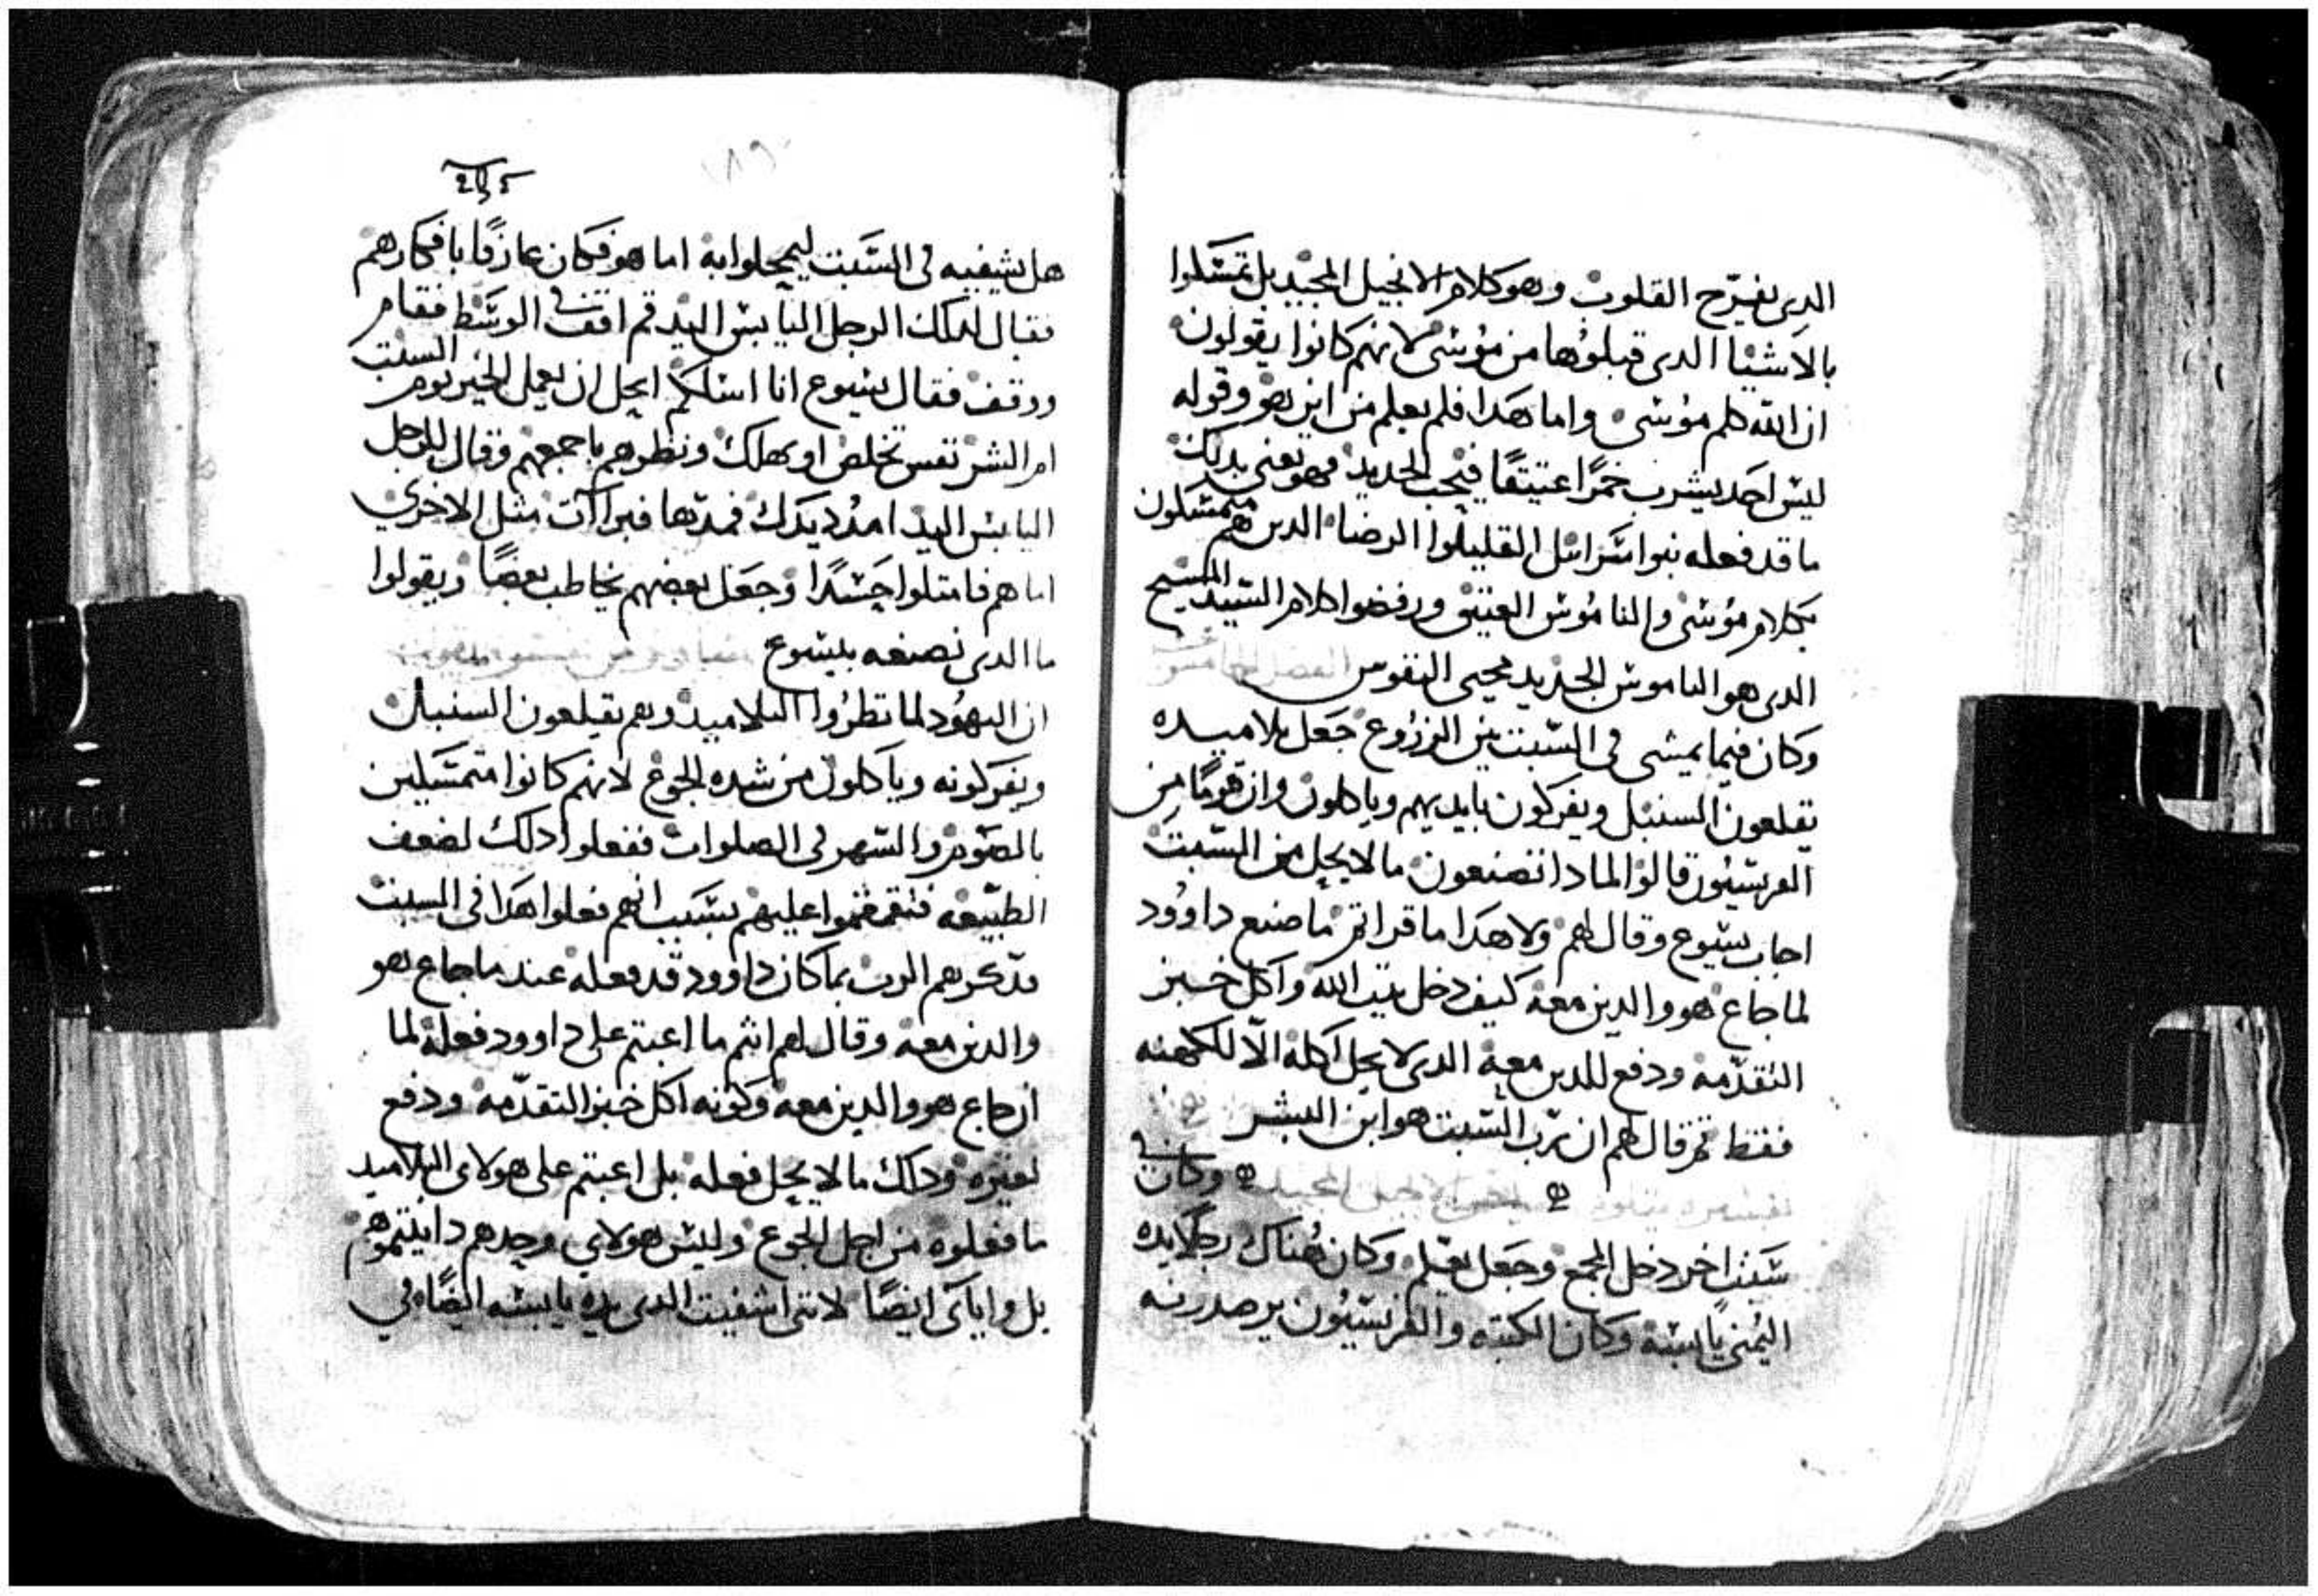 الدى يفرّح القلوب وهو كلام الانجيل المجيد بل تمسّكوا
بالاشيا الدى قبلوُها من موُسى لانهم كانوا يقولون
ان الله كلم موُسى واما هَدا فلم يعلم من اين هو وقوله
ليس احَد يشرب خمرًا عتيقًا فيحب الجديد فهو يعنى بدلك
ما قد فعله بنوا اسَرائل القليلوا الرضا الدين هم متمسّكون
بكلام موُسى والناموُس العتيق ورفضوا كلام السّيد المسيح
الدى هو الناموس الجديد محيى النفوس الفصل الخامس
وكان فيما يمشى فى السّبت بين الزرُوع جَعل تلاميده
يقلعون السنبل ويفركون بايديهم وياكلون وان قومًا من
الفريسيُون قالوُا لمادا تصنعون ما لا يحِل فى السّبت
اجاب يسُوع وقال لهم ولا هَدا ما قراتم ما صنع داوُود
لما جاع هو والدين معه كيف دخل بيت الله وَاكل خبز
التقدّمه ودفع للدين معه الدى لا يحِل اكله الاّ للكهنه
فقط ثم قال لهم ان رّب السّبت هو ابن البشر
وكان فى
سَبت اخر دخل المجمع وجَعل يعّلم وَكان هُناك رجلا يده
اليُمنى يابسَه وَكان الكتبه والفريسيُون يرصدونه
هل يشفيه فى السَّبت ليمحلوا به اما هو فكان عارفًا بافكارهم
فقال لدلك الرجل اليابس اليد قم اقف فى الوسَط فقام
ووقف فقال يسُوع انا اسلكم ايحل ان يعمل الخير يوم السبت
ام الشر نفس تخلص او تهلك ونظرهم باجمعهم وقال للرجل
اليابس اليد امدُد يدك فمدّها فبراات مثل الاخرى
اما هم فامتلوا حَسَدًا وَجعَل بعضهم يخاطب بعضًا ويقولوا
ما الدى نصنعه بيسُوع
ان اليهُود لما نظرُوا التلاميد وهم يقلعون السنبل
ويفركونه وياكلون من شده الجوُع لانهم كانوا متمسّكين
بالصَوم والسّهر فى الصلوات ففعلوا دلك لضعف
الطبّيعه فتقمقموا عليهم بسَبب انهم فعلوا هَدا فى السبت
فدكرهم الرب بما كان داوود قد فعله عند ما جاع هو
والدين معه وقال لهم انتم ما اعبتم على داوود فعله لما
ان جاع هو والدين معه وكونه اكل خبز التقدّمه ودفع
لغيره ودلك ما لا يحِل فعله بل اعبتم على هولاى التلاميد
ما فعلوه من اجل الجوُع وليس هولاى وحدهم داينتموهم
بل واياىَ ايضًا لاننى اشفيت الدى يده يابسه ايضًا فى